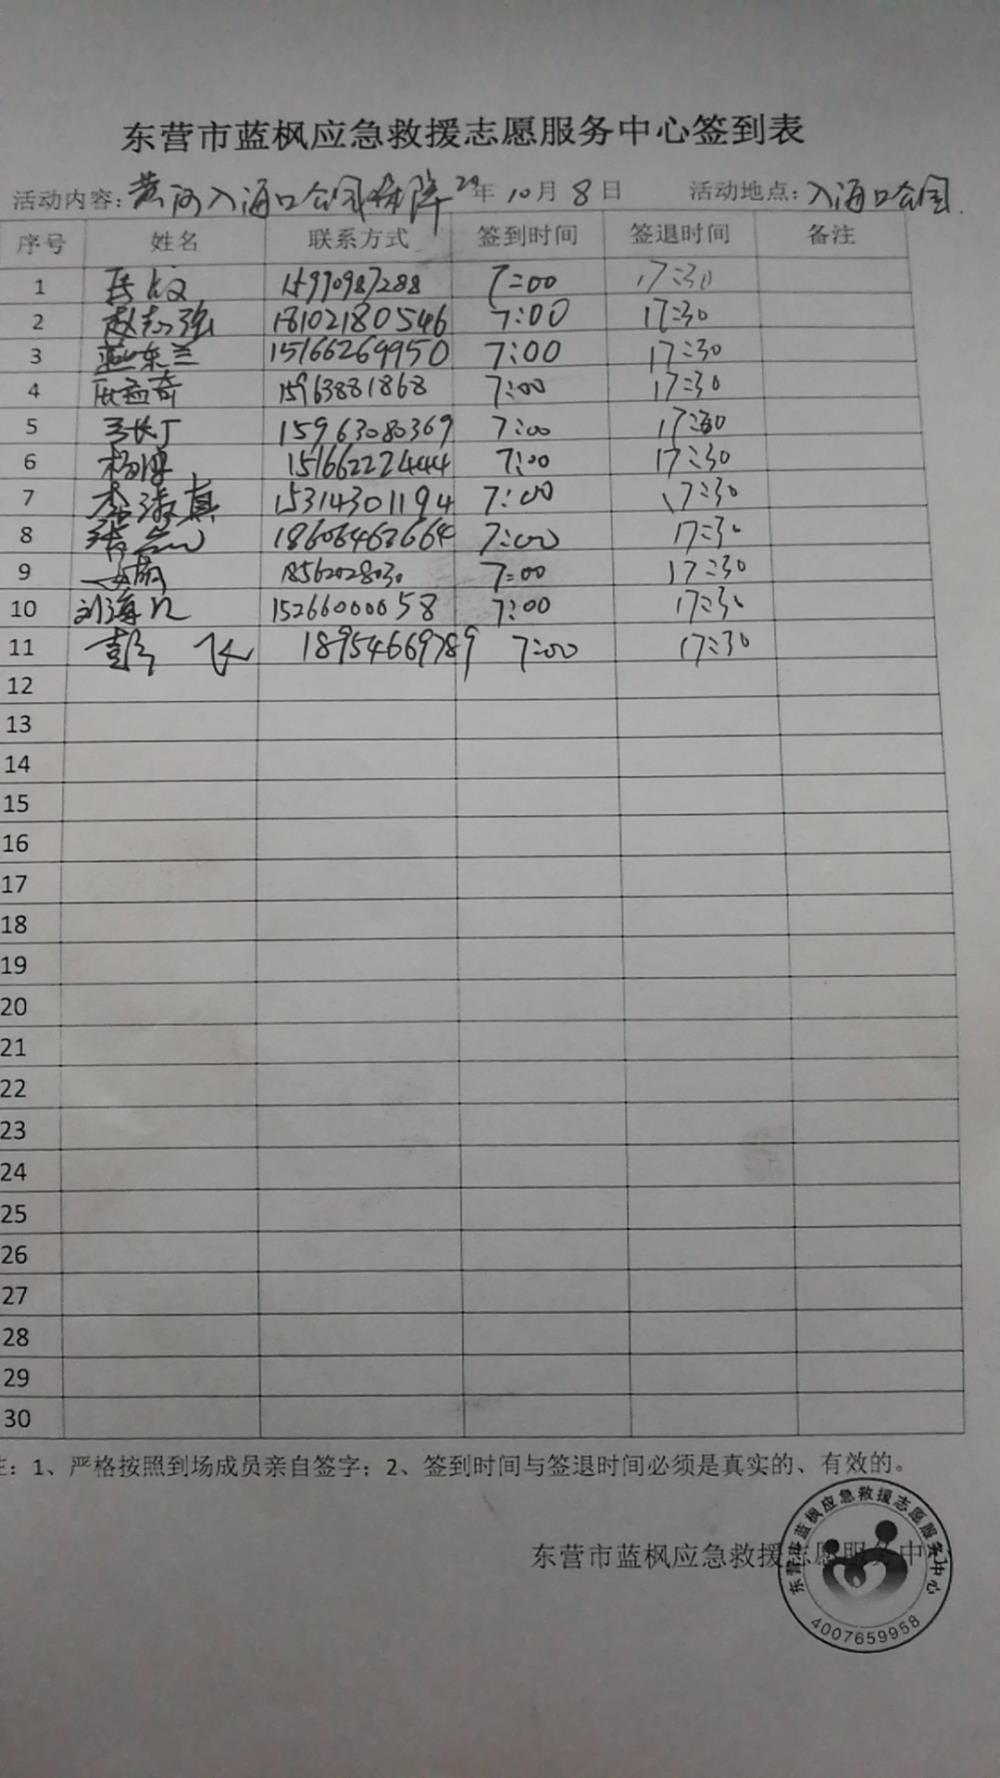 东营市蓝枫应急救援志愿服务中心签到表
活动内容：黄河入海口公园保障 20年10月8日 活动地点：入海口公园
序号 姓名 联系方式 签到时间 签退时间 备注
1 15990987288 7:00 17:30
2 赵志强 18102180546 7:00 17:30
3 燕东兰 15166269950 7:00 17:30
4 15963881868 7:00 17:30
5 15963080369 7:00 17:30
6 杨博 15166222444 7:00 17:30
7 李淑真 15314301194 7:00 17:30
8 18606463664 7:00 17:30
9 18562028030 7:00 17:30
10 刘海 15266000058 7:00 17:30
11 彭飞 18954669789 7:00 17:30
12
13
14
15
16
17
18
19
20
21
22
23
24
25
26
27
28
29
30
注：1、严格按照到场成员亲自签字；2、签到时间与签退时间必须是真实的、有效的。
东营市蓝枫应急救援志愿服务中心
东营市蓝枫应急救援志愿服务中心
4007659958